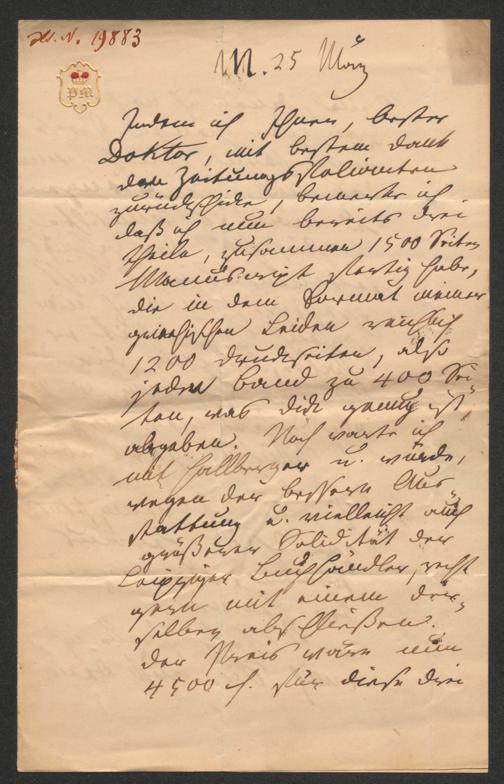 H. N. 19883
PM
M. 25 März
Indem ich Ihnen, bester
Doktor, mit bestem Dank
den Zeitungs
zurückschicke, bemerke ich
daß ich nun bereits drei
Theile, zusammen 1500 Seiten
Manuscript fertig habe,
die in dem Format meiner
griechischen Leiden reichlich
1200 Druckseiten, also
jeden Band zu 400 Sei-
ten, was dick genug ist,
abgeben. Noch warte ich
mit Hallberger u. würde,
wegen der bessern Aus
stattung u. vielleicht auch
größerer Solidität der
Leipziger Buchhändler, recht
gern mit einem der-
selben abschließen.
Der Preis wäre nun
4500 f. für diese drei